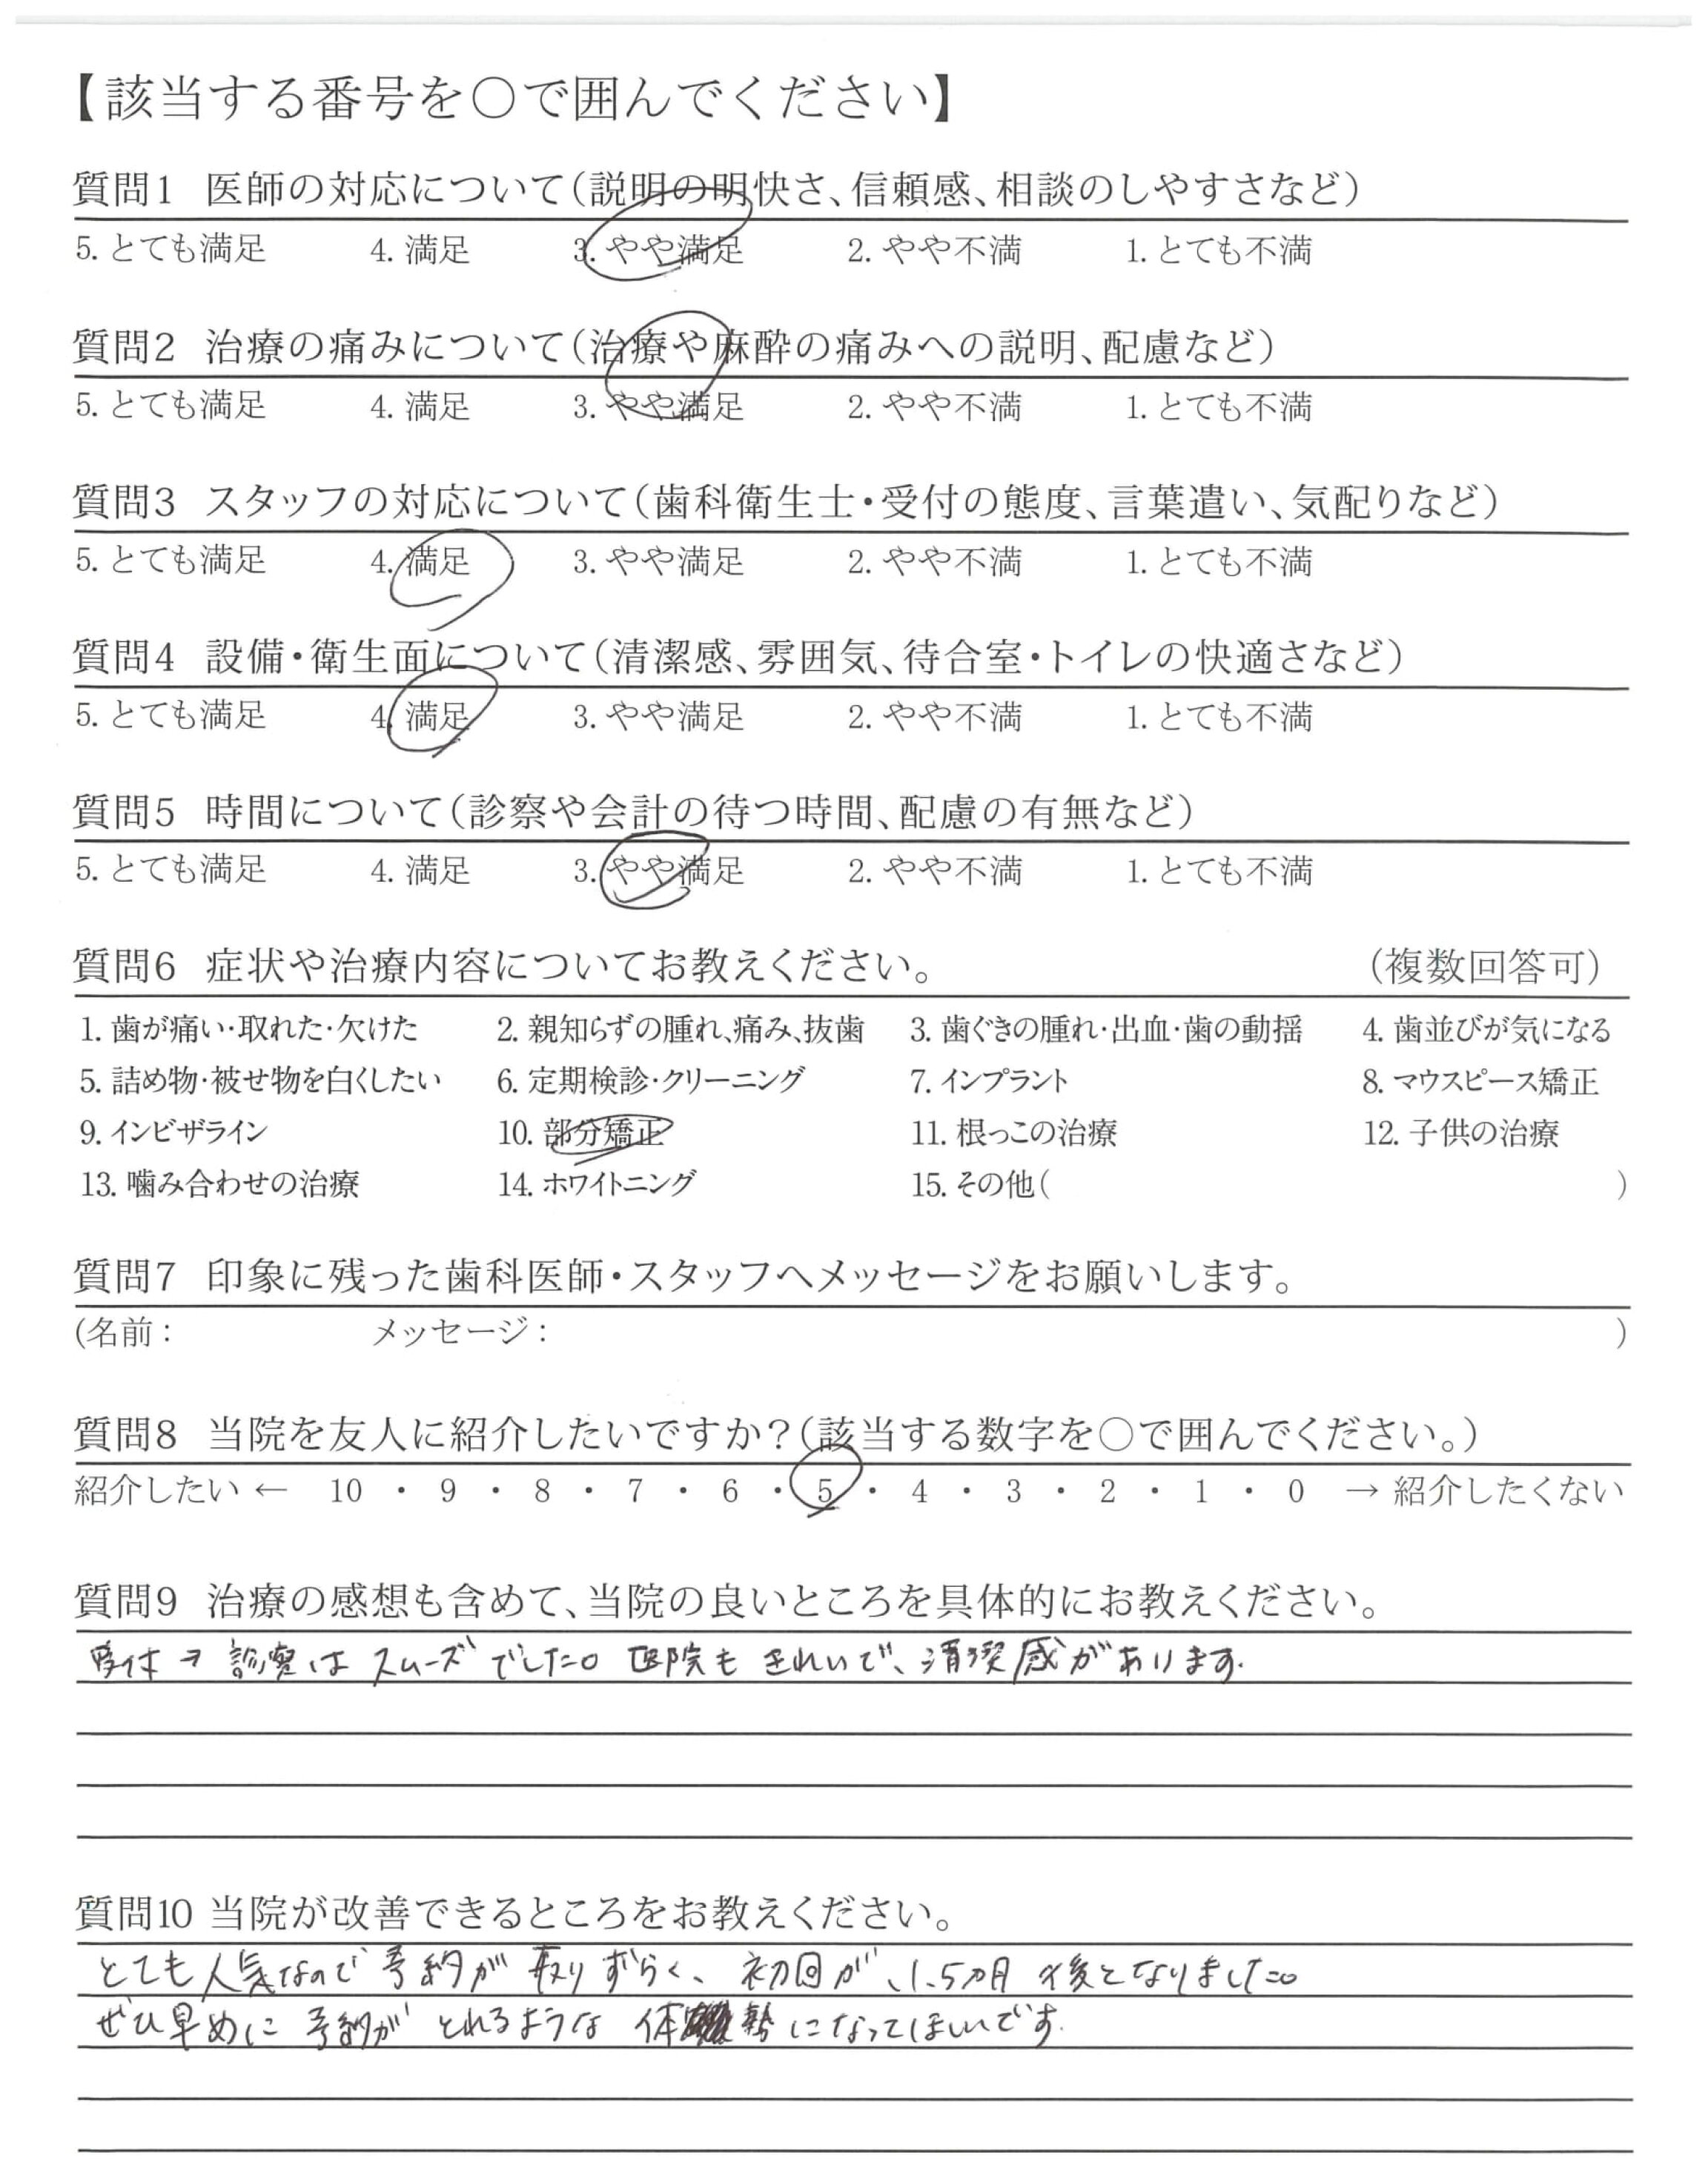 【該当する番号を○で囲んでください】
質問1 医師の対応について(説明の明快さ、信頼感、相談のしやすさなど)
5. とても満足 4. 満足 3. やや満足 2. やや不満 1. とても不満
質問2 治療の痛みについて(治療や麻酔の痛みへの説明、配慮など)
5. とても満足 4. 満足 3. やや満足 2. やや不満 1. とても不満
質問3 スタッフの対応について(歯科衛生士・受付の態度、言葉遣い、気配りなど)
5. とても満足 4. 満足 3. やや満足 2. やや不満 1. とても不満
質問4 設備・衛生面について(清潔感、雰囲気、待合室・トイレの快適さなど)
5. とても満足 4. 満足 3. やや満足 2. やや不満 1. とても不満
質問5 時間について(診察や会計の待つ時間、配慮の有無など)
5. とても満足 4. 満足 3. やや満足 2. やや不満 1. とても不満
質問6 症状や治療内容についてお教えください。 (複数回答可)
1. 歯が痛い・取れた・欠けた 2. 親知らずの腫れ、痛み、抜歯 3. 歯ぐきの腫れ・出血・歯の動揺 4. 歯並びが気になる
5. 詰め物・被せ物を白くしたい 6. 定期検診・クリーニング 7. インプラント 8. マウスピース矯正
9. インビザライン 10. 部分矯正 11. 根っこの治療 12. 子供の治療
13. 噛み合わせの治療 14. ホワイトニング 15. その他( )
質問7 印象に残った歯科医師・スタッフへメッセージをお願いします。
(名前： メッセージ： )
質問8 当院を友人に紹介したいですか?(該当する数字を○で囲んでください。)
紹介したい ← 10 ・ 9 ・ 8 ・ 7 ・ 6 ・ 5 ・ 4 ・ 3 ・ 2 ・ 1 ・ 0 → 紹介したくない
質問9 治療の感想も含めて、当院の良いところを具体的にお教えください。
受付→診察はスムーズでした。医院もきれいで、清潔感があります。
質問10 当院が改善できるところをお教えください。
とても人気なので予約が取りずらく、初回が、1.5カ月以後となりました。
ぜひ早めに予約がとれるような体勢になってほしいです。